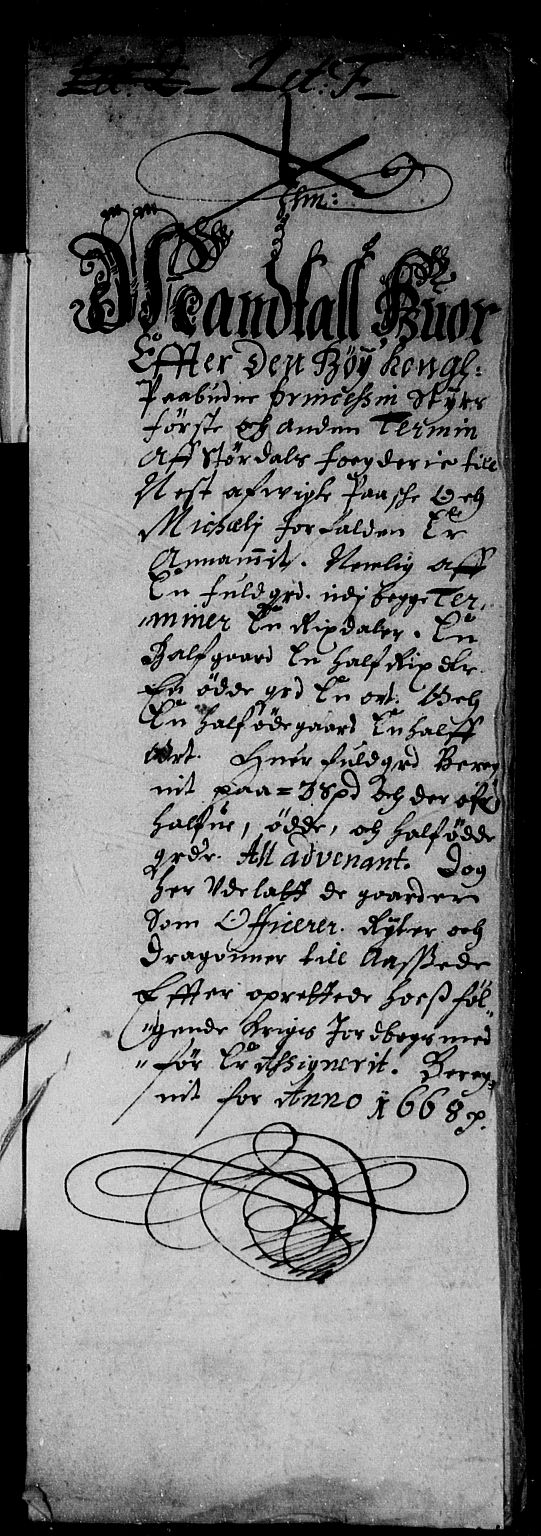 Lit: F
Mandtall Huor
Effter den Höy Kongl:
Paabudne Princessin Styrs
förste och anden Termin
Aff Stördals foegderie till
Nest afwigte Paasche Och
Michaelj forfalden Er
Annammit. Nemlig aff
En fuldgrd. udj begge Ter¸
miner En Rixdaler. En
Halfgaard En half Rixdlr.
En öde grd En ort. Och
En half ödegaard En halff
ort. Huer fuldgrd Bereg
nit paa = 3 spd och der efter
halfue, ödde, och halfödde
grdr. Al advenant. Dog
her Vdelatt de gaarder
Som Officerer. Rÿter och
Dragonner till Aasæde
Effter oprettede hoesföl¸
gende Krigs Jordbogs med
för Er Assignerit. Bereg¸
nit for Anno 1668